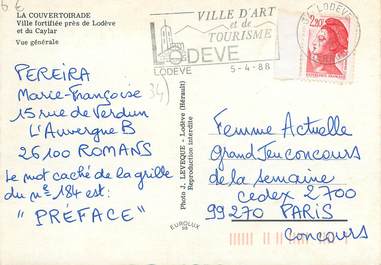 6 €
LA COUVERTOIRADE
Ville fortifiée près de Lodève
et du Caylar
Vue générale
VILLE D'ART
et de
TOURISME
LODEVE
LODEVE
5-4-88
LODEVE
2,20
34)
PEREIRA
Marie-Françoise
15 rue de Verdun
L'Auvergne B
26100 ROMANS
Le mot caché de la grille
du n° 184 est:
"PRÉFACE"
Photo J. LEVEQUE - Lodève (Hérault)
Reproduction interdite
EUROLUX
Femme Actuelle
Grand Jeu concours
de la semaine
Cedex 2700
99270 PARIS
Concours